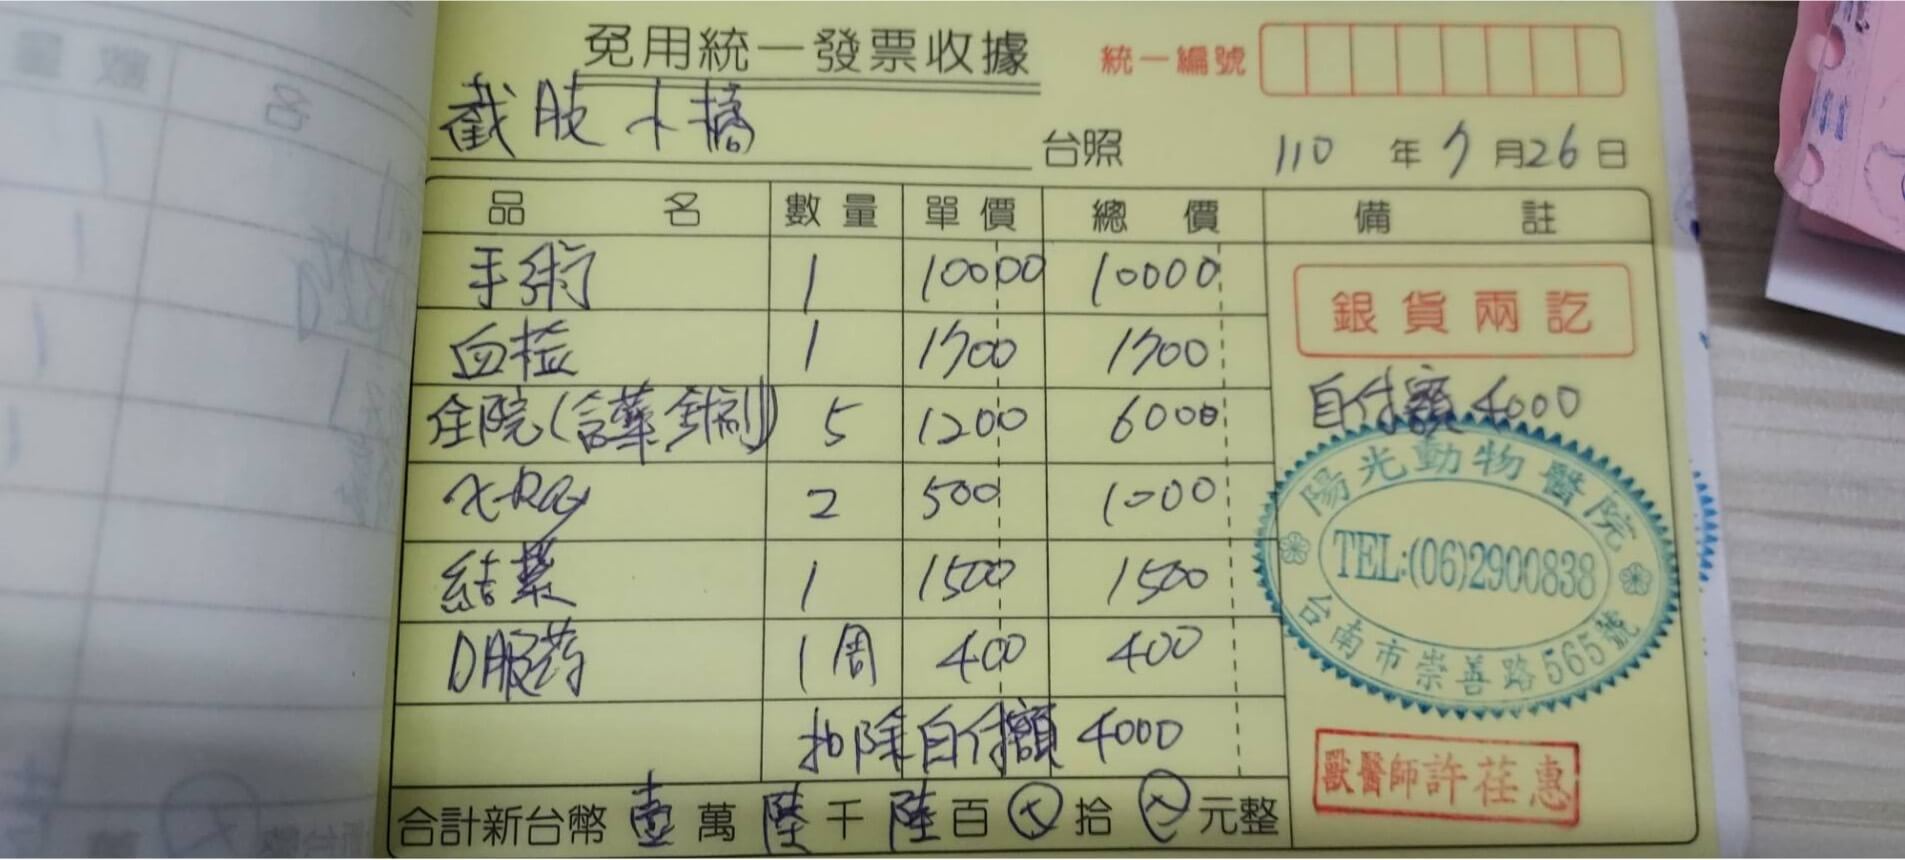 免用統一發票收據
統一編號
截肢小橘 台照
110 年 7 月 26 日
品名 數量 單價 總價 備註
手術 1 10000 10000
銀貨兩訖
血檢 1 1700 1700
自付額 4000
住院(含藥針劑) 5 1200 6000
X-Ray 2 500 1000
結紮 1 1500 1500
口服药 1周 400 400
扣除自付額 4000
陽光動物醫院
TEL:(06)2900838
台南市崇善路565號
獸醫師許荏惠
合計新台幣 壹 萬 陸 千 陸 百 拾 元整